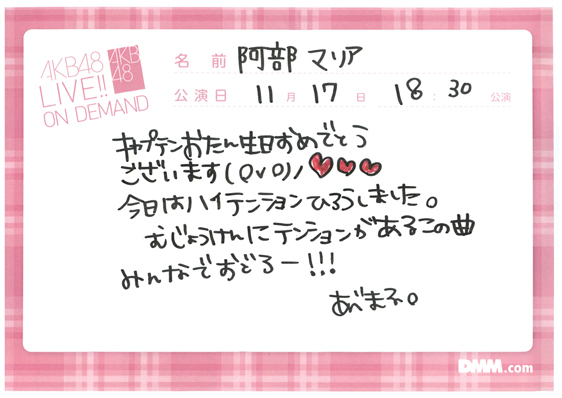 AKB48
LIVE!!
ON DEMAND
AKB
48
名前 阿部 マリア
公演日 11月17日 18:30 公演
キャプテンおたん生日おめでとう
ございます(OvO)ノ♥♥♥
今日はハイテンションひろうしました。
むじょうけんにテンションがあるこの曲
みんなでおどろー!!!
あべまr。
DMM.com